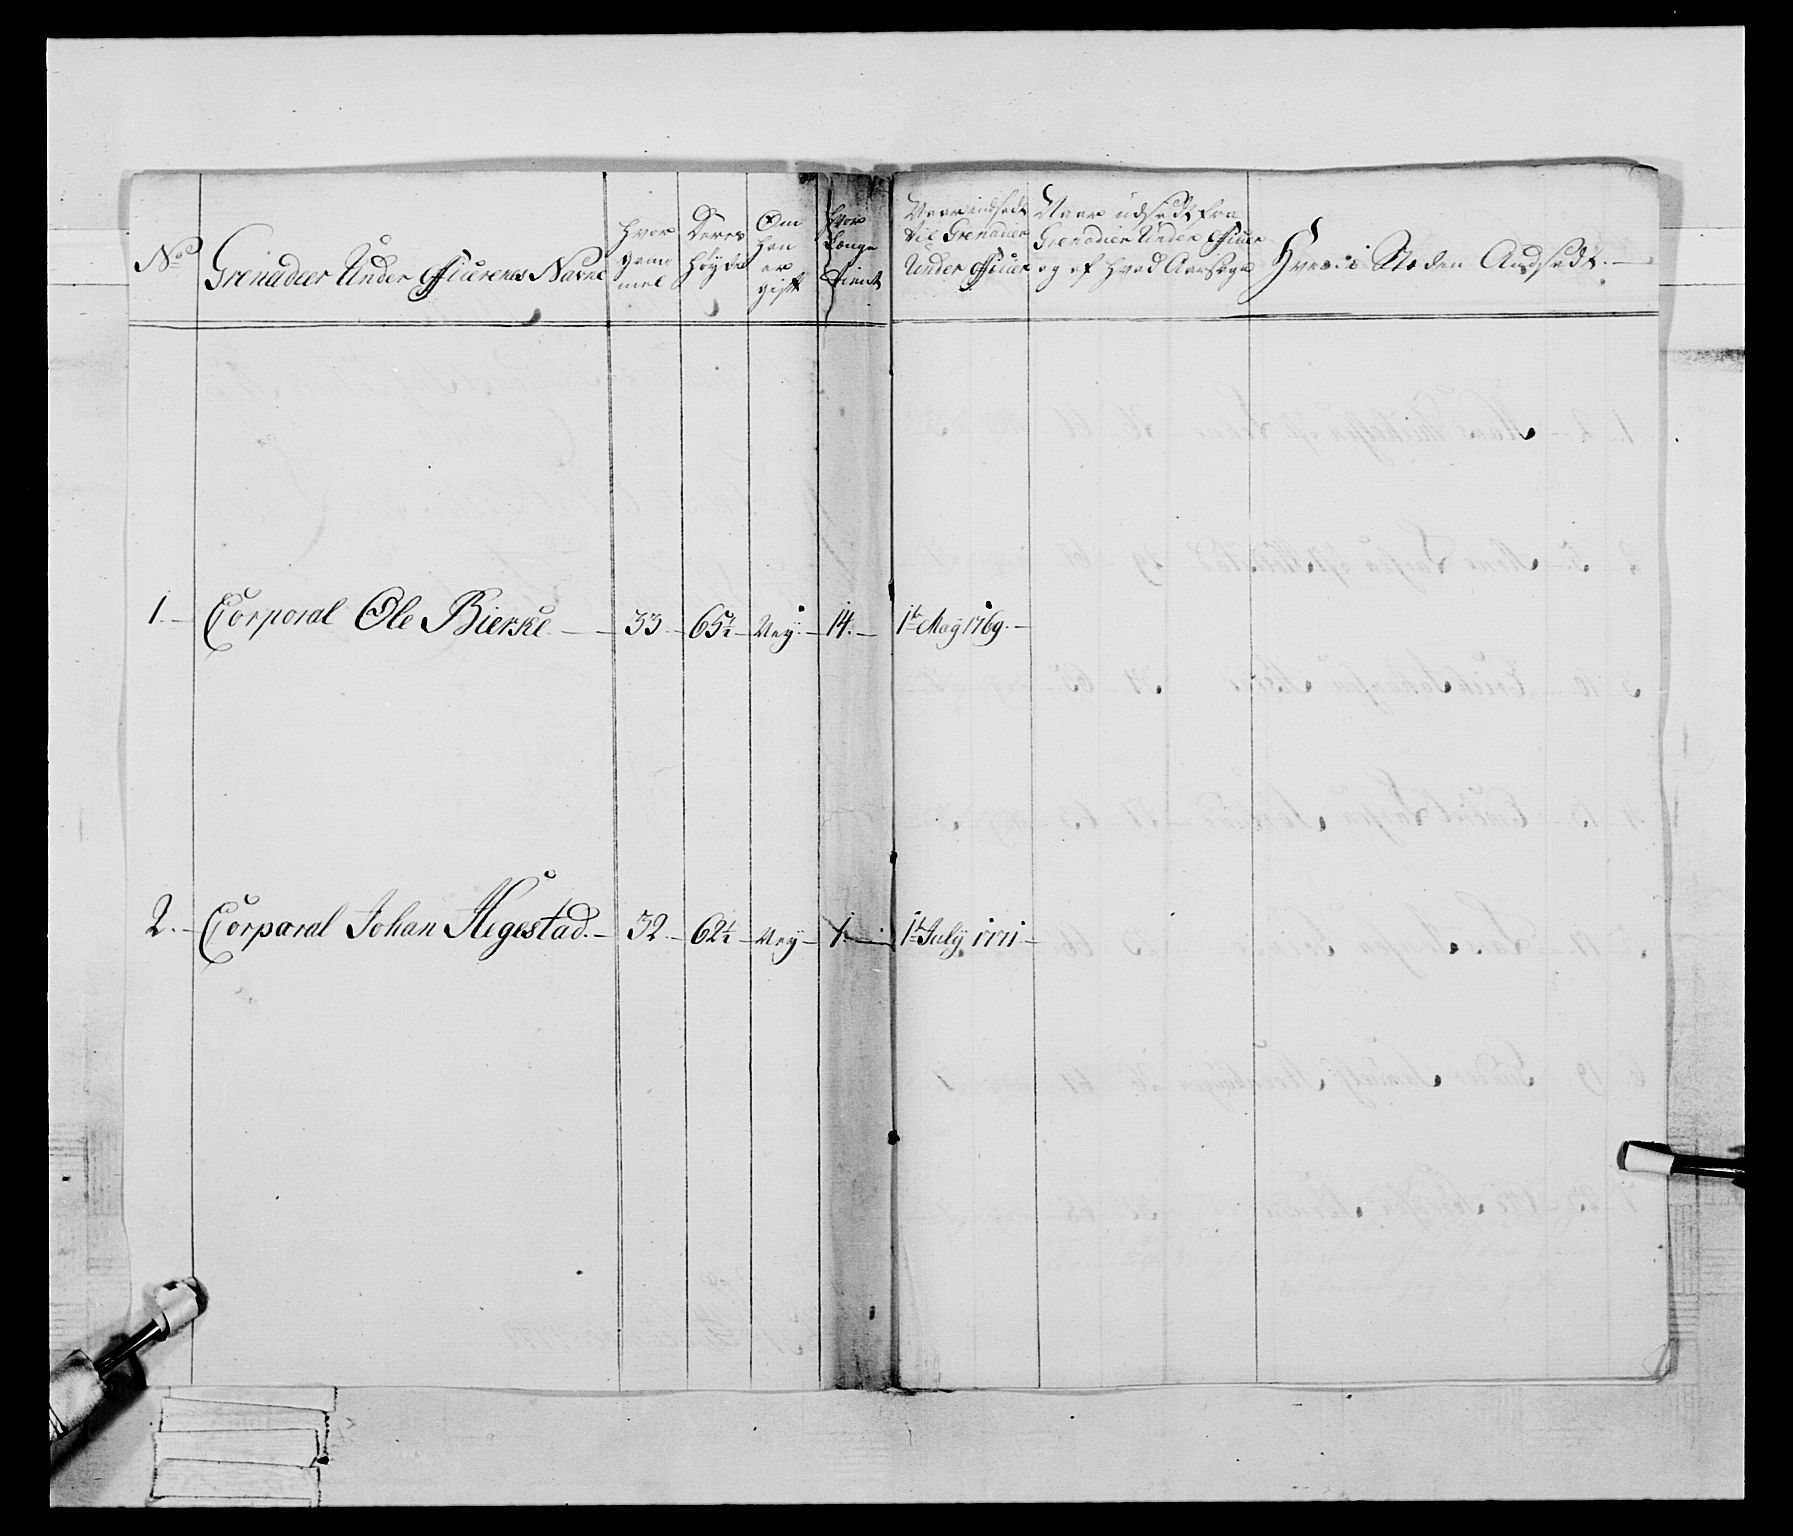 No
Grenadeer Under Officerenes Navne
Hvor
gam̄
mel
Deres
Høyde
Om
han
er
gift
Hvor
Længe
tient
Naar indsadt
til Grenadier
Under Officer
Naar udsadt fra
Grenadier Under Officer
og af hvad Aarsage
Hvem i Steden Andsadt.
1. Corporal Ole Bierke 33 65½ Ney 14. 1te May 1769.
2. Corporal Johan Hegestad. 32. 62½ Ney 1. 1te July 1771.